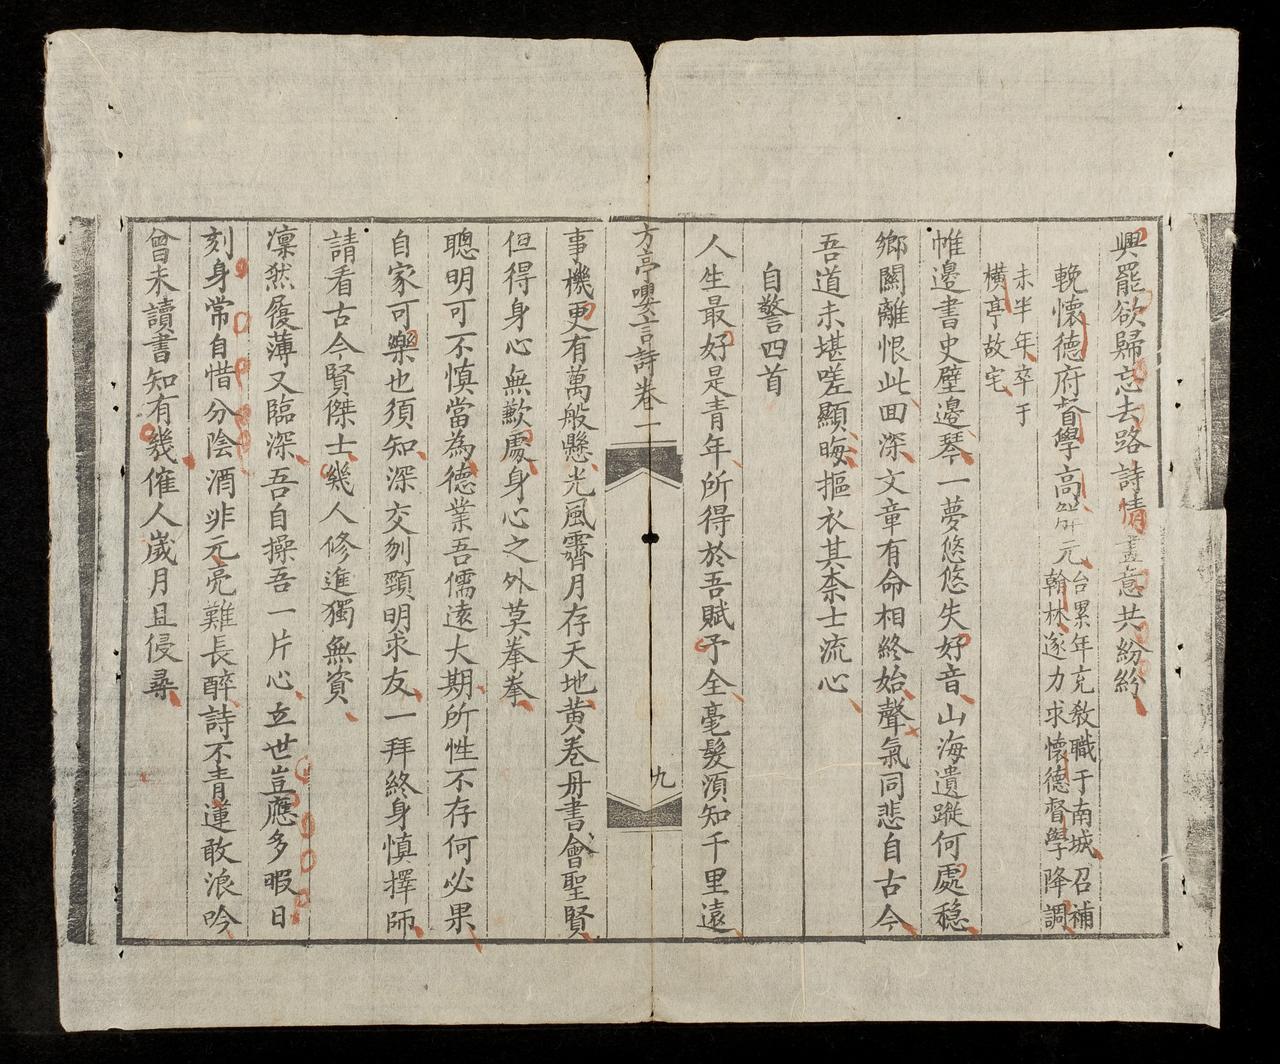 興罷欲歸忘去路詩情畫意共紛紛
輓懷德府督學高解元台累年充教職于南城召補
翰林遂力求懷德督學降調
未半年卒于
橫亭故宅
帷邊書史壁邊琴一夢悠悠失好音山海遺蹤何處穩
鄉關離恨此回深文章有命相終始聲氣同悲自古今
吾道未堪嗟顯晦摳衣其柰士流心
自警四首
人生最好是青年所得於吾賦予全毫髮須知千里遠
方亭嚶言詩卷一
九
事機更有萬般懸光風霽月存天地黃卷丹書會聖賢
但得身心無歉處身心之外莫拳拳
聰明可不慎當為德業吾儒遠大期所性不存何必果
自家可樂也須知深交刎頸明求友一拜終身慎擇師
請看古今賢傑士幾人修進獨無資
凜然履薄又臨深吾自操吾一片心立世豈應多暇日
刻身常自惜分陰酒非元亮難長醉詩不青蓮敢浪吟
曾未讀書知有幾催人歲月且侵尋